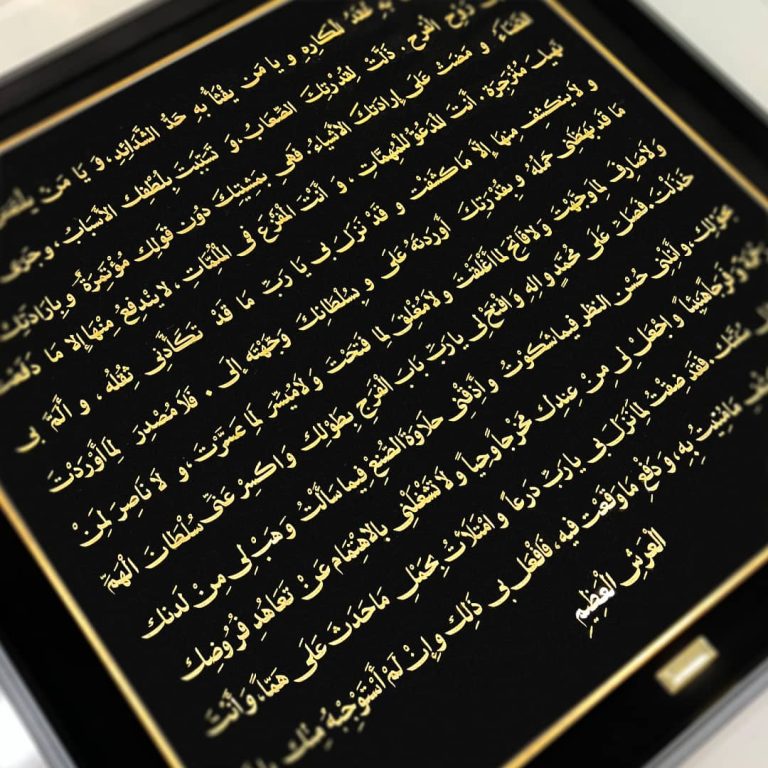 بِهِ عُقَدُ المَكارِهِ و يا مَن يُفْثَأُ بِهِ حَدُّ الشَّدائِدِ، وَ يا مَن يلتمس
رَوْحُ الْفَرَجِ. ذَلَّتْ لِقُدْرَتِكَ الصِّعَابُ، وَ تَسَبَّبَتْ بِلُطْفِكَ الأَسْبَابُ، و جَرَى
القَضَاءُ و مَضَتْ عَلَى إِرَادَتِكَ الأَشْيَاءُ. فَهِيَ بِمَشِيَّتِكَ دُونَ قَوْلِكَ مُؤْتَمِرَةٌ وَ بِإِرَادَتِكَ
نَهْيِكَ مُنْزَجِرَةٌ. أَنْتَ الْمَدْعُوُّ لِلْمُهِمَّاتِ، وَ أَنْتَ الْمَفْزَعُ فِي الْمُلِمَّاتِ، لا يَنْدَفِعُ مِنْهَا إلا مَا دَفَعْتَ
و لا يَنْكَشِفُ مِنْهَا إِلَّا مَا كَشَفْتَ و قَدْ نَزَلَ بِي يَا رَبِّ مَا قَدْ تَكَأَّدَنِي ثِقْلُهُ، و أَلَمَّ بِي
مَا قَدْ بَهَظَنِي حَمْلُهُ وَ بِقُدْرَتِكَ أَوْرَدْتَهُ عَلَيَّ وَ بِسُلْطَانِكَ وَجَّهْتَهُ إِلَيَّ. فَلَا مُصْدِرَ لِمَا أَوْرَدْتَ
وَلَا صَارِفَ لِمَا وَجَّهْتَ وَلَا فَاتِحَ لِمَا أَغْلَقْتَ وَلَا مُغْلِقَ لِمَا فَتَحْتَ وَلَا مُيَسِّرَ لِمَا عَسَّرْتَ، و لا نَاصِرَ لِمَنْ
خَذَلْتَ فَصَلِّ عَلَى مُحَمَّدٍ وآلِهِ وَافْتَحْ لِي يا رَبِّ بَابَ الْفَرَجِ بِطَوْلِكَ وَاكْسِرْ عَنِّي سُلْطَانَ الْهَمِّ
بِحَوْلِكَ، وَأَنِلْنِي حُسْنَ النَّظَرِ فِيمَا شَكَوْتُ وَأَذِقْنِي حَلَاوَةَ الصُّنْعِ فِيمَا سَأَلْتُ وَهَبْ لِي مِنْ لَدُنْكَ
رَحْمَةً وَفَرَجًا هَنِيئًا وَاجْعَلْ لِي مِنْ عِنْدِكَ مَخْرَجًا وَحِيًّا وَلَا تَشْغَلْنِي بِالِاهْتِمَامِ عَنْ تَعَاهُدِ فُرُوضِكَ
سُنَّتِكَ. فَقَدْ ضِقْتُ لِمَا نَزَلَ بِي يا رَبِّ ذَرْعًا وَامْتَلَأْتُ بِحَمْلِ مَا حَدَثَ عَلَيَّ هَمًّا، وَأَنْتَ
كَشْفِ مَا مُنِيتُ بِهِ، وَ دَفْعِ مَا وَقَعْتُ فِيهِ، فَافْعَلْ بِي ذَلِكَ وَإِنْ لَمْ أَسْتَوْجِبْهُ مِنْكَ
الْعَرْشِ الْعَظِيمِ